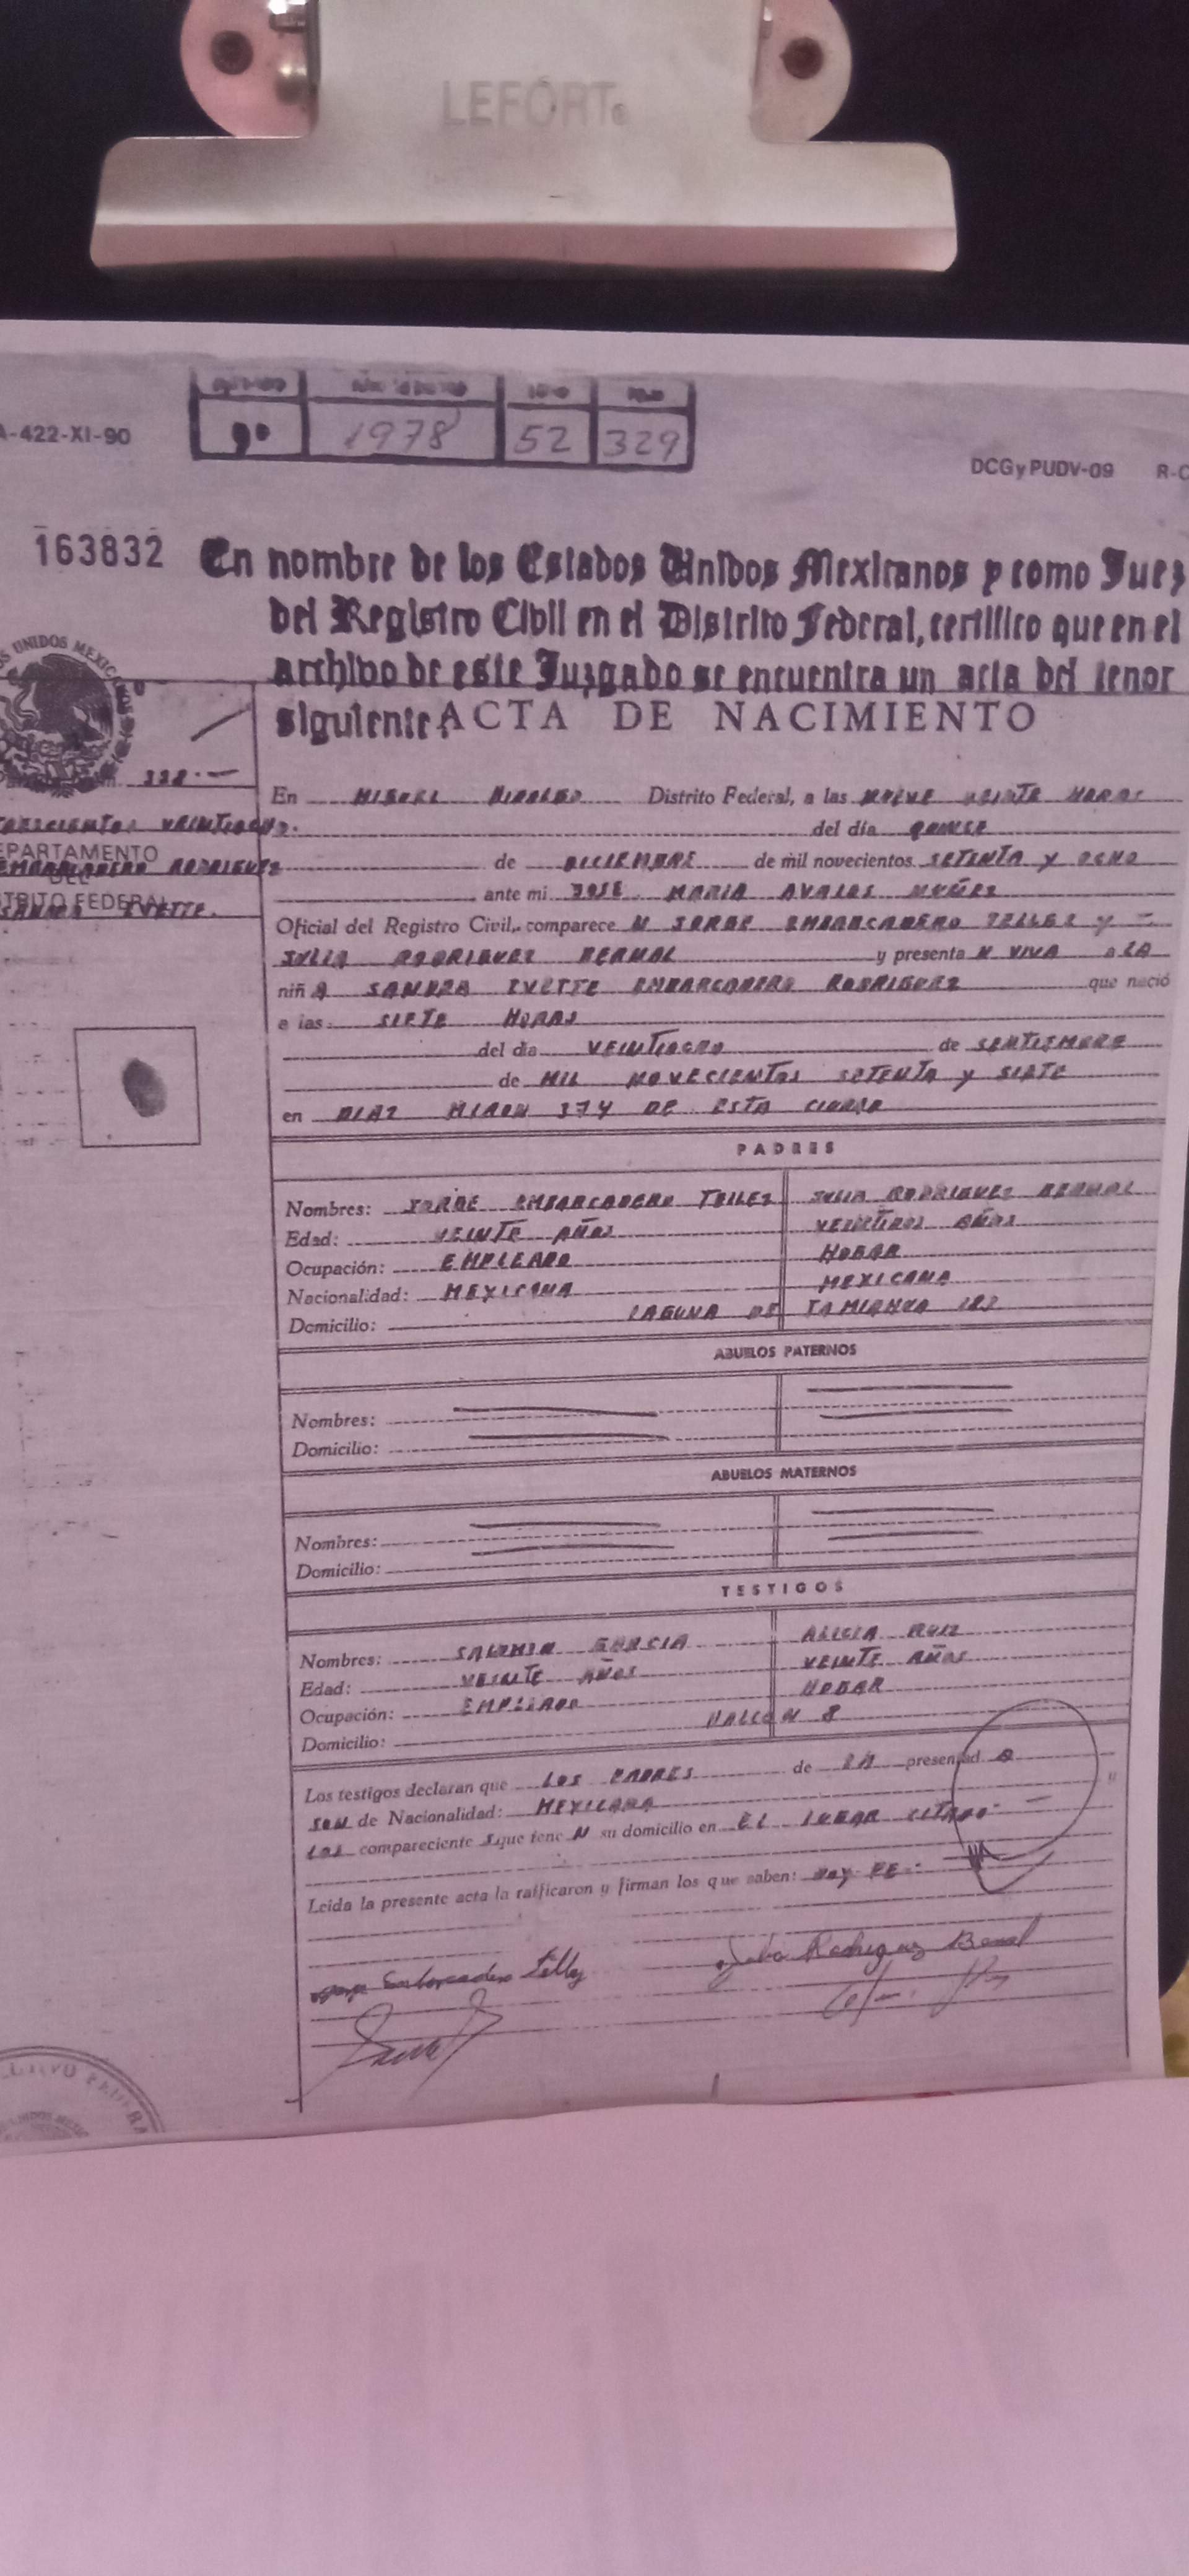 LEFORT®
A-422-XI-90
1978 52 329
DCGyPUDV-09
163832
En nombre de los Estados Unidos Mexicanos y como Juez
del Registro Civil en el Distrito Federal, certifico que en el
archivo de este Juzgado se encuentra un acta del tenor
siguiente: ACTA DE NACIMIENTO
UNIDOS MEXIC
En MIGUEL HIDALGO Distrito Federal, a las NUEVE VEINTE HORAS
VEINTIOCHO. del día QUINCE
DEPARTAMENTO
EMBARCADERO RODRIGUEZ de DICIEMBRE de mil novecientos SETENTA Y OCHO
DEL
DISTRITO FEDERAL
SANDRA IVETTE. ante mi JOSE MARIA AVALOS NUÑEZ
Oficial del Registro Civil, comparece N JORGE EMBARCADERO TELLEZ Y
JULIA RODRIGUEZ BERNAL y presenta N VIVA a LA
niñ A SANDRA IVETTE EMBARCADERO RODRIGUEZ que nació
a las SIETE HORAS
del día VEINTIOCHO de SEPTIEMBRE
de MIL NOVECIENTOS SETENTA Y SIETE
en DIAZ MIRON 374 DE ESTA CIUDAD
PADRES
Nombres: JORGE EMBARCADERO TELLEZ JULIA RODRIGUEZ BERNAL
Edad: VEINTE AÑOS AÑOS
Ocupación: EMPLEADO HOGAR
Nacionalidad: MEXICANA MEXICANA
Domicilio: LAGUNA DE TAMIAHUA
ABUELOS PATERNOS
Nombres:
Domicilio:
ABUELOS MATERNOS
Nombres:
Domicilio:
TESTIGOS
Nombres: GARCIA ALICIA RUIZ
Edad: VEINTE AÑOS VEINTE AÑOS
Ocupación: EMPLEADO HOGAR
Domicilio: HALCON 8
Los testigos declaran que LOS PADRES de LA presentad A
SON de Nacionalidad: MEXICANA
LOS compareciente S que tene N su domicilio en EL LUGAR CITADO
Leida la presente acta la ratificaron y firman los que saben: DOY FE
Embarcadero Tellez Julia Rodriguez Bernal